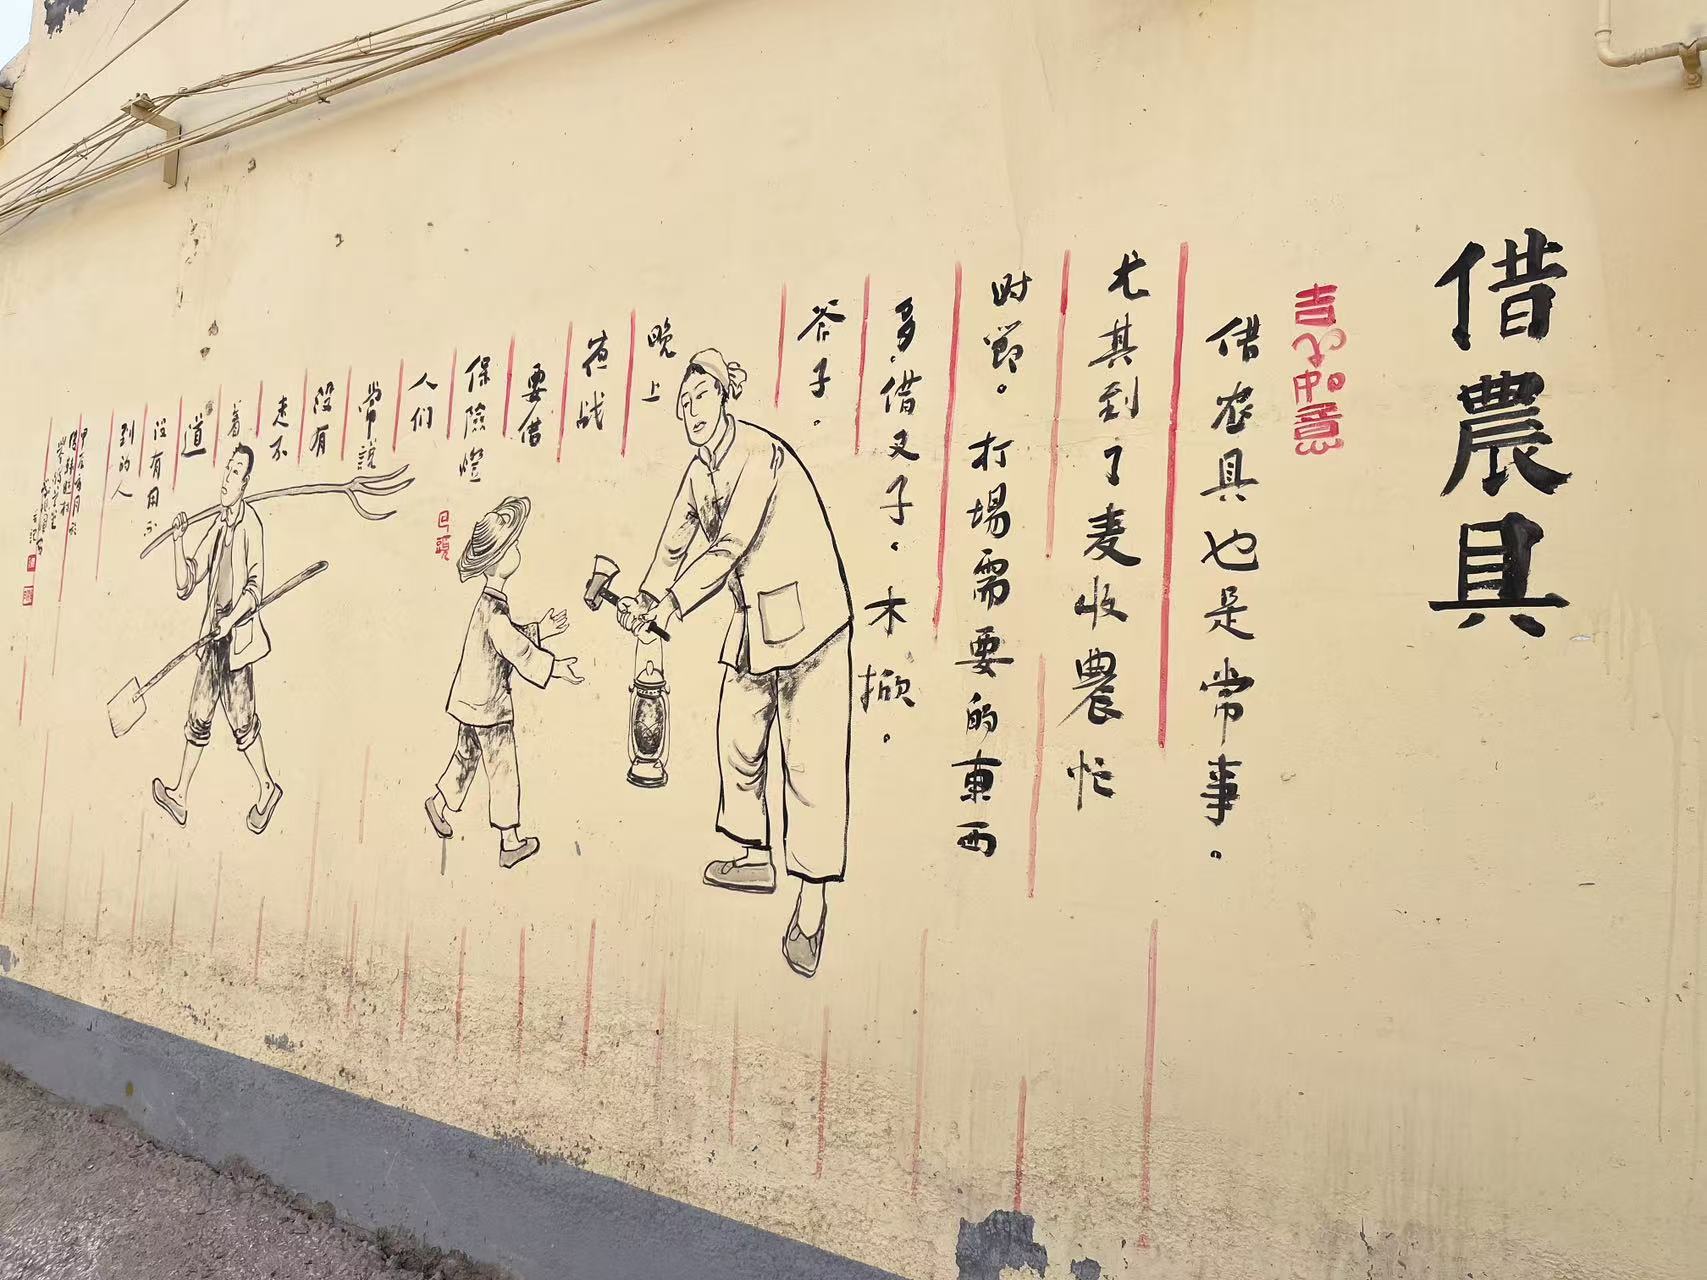 借農具
吉
中意
借农具也是常事。
尤其到了麦收農忙
时節。打場需要的東西
多、借叉子、木掀。
斧子。
晚上
夜战
要借
保險燈
人们
常說
没有
走不
着
道
没有用不
到的人
回頭